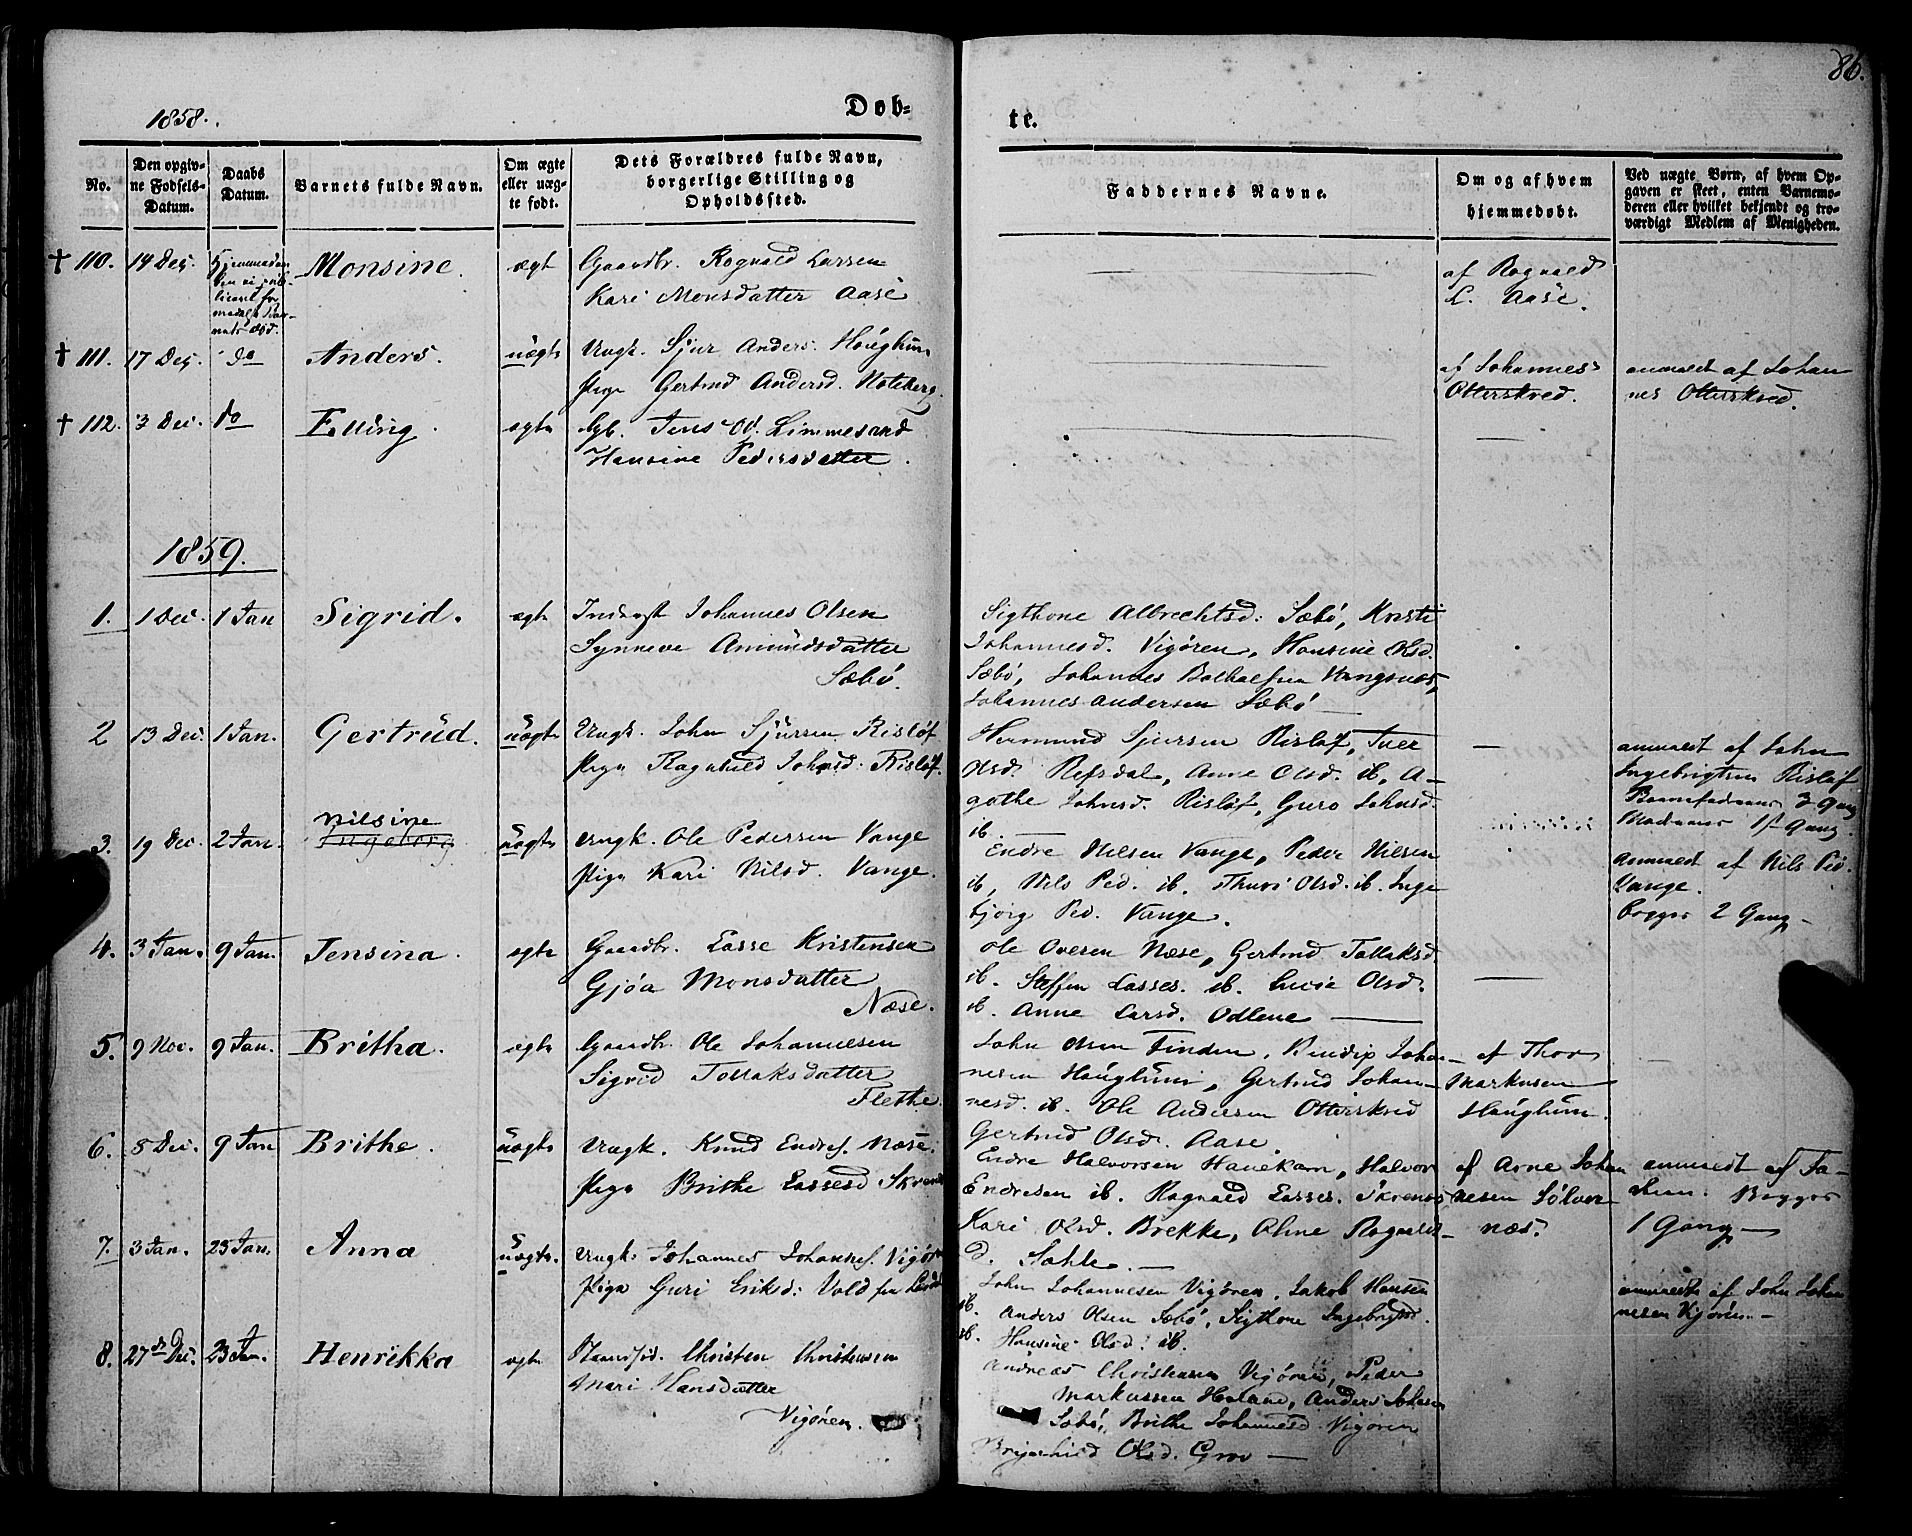 86.
1858.
Døb-
te.
No.
Den opgiv-
ne Fødsels-
Datum.
Daabs
Datum.
Barnets fulde Navn.
Om ægte
eller uæg-
te født.
Dets Forældres fulde Navn,
borgerlige Stilling og
Opholdssted.
Faddernes Navne.
Om og af hvem
hjemmedøbt.
Ved uægte Børn, af hvem Op-
gaven er skeet, enten Barnemo-
deren eller hvilket bekjendt og tro-
værdigt Medlem af Menigheden.
† 110. 14 Dec. Monsine. ægt Gaardbr. Rognald Larsen
Kari Monsdatter Aase
af Rognald
L. Aase.
† 111. 17 Dec. do Anders. uægte Ungk. Sjur Anders. Houglum
Pige Gertrud Andersd. Noteberg.
af Johannes
Otterskred.
anmeldt af Johan
nes Otterskred.
† 112. 3 Dec. do Elling. egte Jens Od. Limmesand
Hansine Pedersdatter.
1859.
1. 1 Dec. 1 Jan Sigrid. egte Inderst Johannes Olsen
Synneve Amundsdatter
Sæbø.
Sigthone Albrechtsd: Sæbø, Kristi
Johannesd. Vigøren, Hansine Olsd.
Sæbø, Johannes Vangsnes,
Johannes Andersen Sæbø —
2 13 Dec. 1 Jan. Gertrud. uægte Ungk. John Sjursen Risløf
Pige Ragnhild Johnsd: Risløf.
Hermund Sjursen Risløf, Iver
Olsd. Refsdal, Anne Olsd. ib, A-
gathe Johnsd. Risløf, Guro Johnsd.
ib. —
anmeldt af John
Ingebrigtsen Risløf
Barnefaderens 3 Gang
Moderens 1st Gang.
3. 19 Dec. 2 Jan. Nilsine
Ingeborg uægte Ungk. Ole Pedersen Vange
Pige Kari Nilsd. Vange.
Endre Nilsen Vange, Peder Nilsen
ib, Nils Ped. ib. Thuri Olsd. ib. Inge
bjørg Ped. Vange.
anmeldt af Nils Pd.
Vange.
begges 2 Gang —
4. 3 Jan. 9 Jan. Jensina. egte Gaardbr. Lasse Kristensen
Gjøa Monsdatter
Næse.
Ole Oversen Næse, Gertrud Tollaksd.
ib. Steffen Lasses. ib. Lucie Olsd.
ib. Anne Larsd. Odlene —
5. 9 Nov. 9 Jan. Britha. egte Gaardbr. Ole Johannesen
Sigrid Tollaksdatter
Flethe.
John Olsen Finden, Bendix Johan-
nesen Houglum, Gertrud Johan-
nesd. ib. Ole Andersen Otterskred
Gertrud Olsd. Aase.
af Thor
Markusen
Houglum.
6. 8 Dec. 9 Jan Brithe. uægte Ungk. Knud Endres. Næse.
Pige Brithe Lassesd
Endre Halvorsen Hanekam, Halvor
Endresen ib. Rognald Lasses.
Kari Olsd. Brekke, Oline Rognalds-
d. Sahle. —
af Arne Johan
nesen Sølver
næs.
anmeldt af Fa-
deren: Begges
1 Gang —
7. 3 Jan. 23 Jan. Anna uægte. Ungk: Johannes Johannes. Vigøren
Pige Guri Eriksd: Vold fra
John Johannesen Vigøren, Jakob Hansen
ib. Anders Olsen Sæbø, Sigthone Ingebrigtsd.
ib. Hansine Olsd. ib.
anmeldt af John Johan
nesen Vigøren. —
8. 27de Dec. 23 Jan. Henrikka egte Christen Christensen
Mari Hansdatter
Vigøren.
Andreas Christensen Vigøren, Peder
Markussen Anders Johan
Sæbø, Brithe Johannesd. Vigøren
Olsd. Grov —